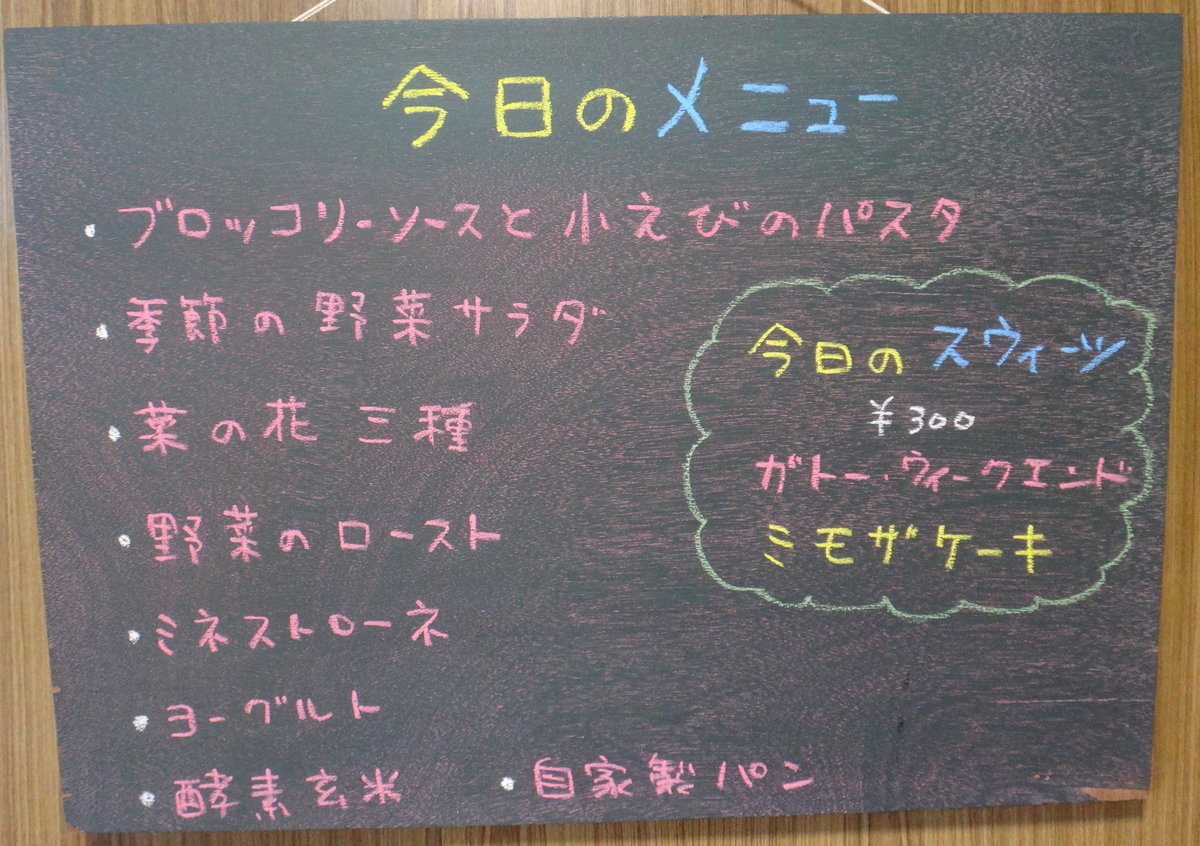 今日のメニュー
・ブロッコリーソースと小えびのパスタ
・季節の野菜サラダ
・菜の花三種
・野菜のロースト
・ミネストローネ
・ヨーグルト
・酵素玄米 ・自家製パン
今日のスウィーツ
¥300
ガトー・ウィークエンド
ミモザケーキ